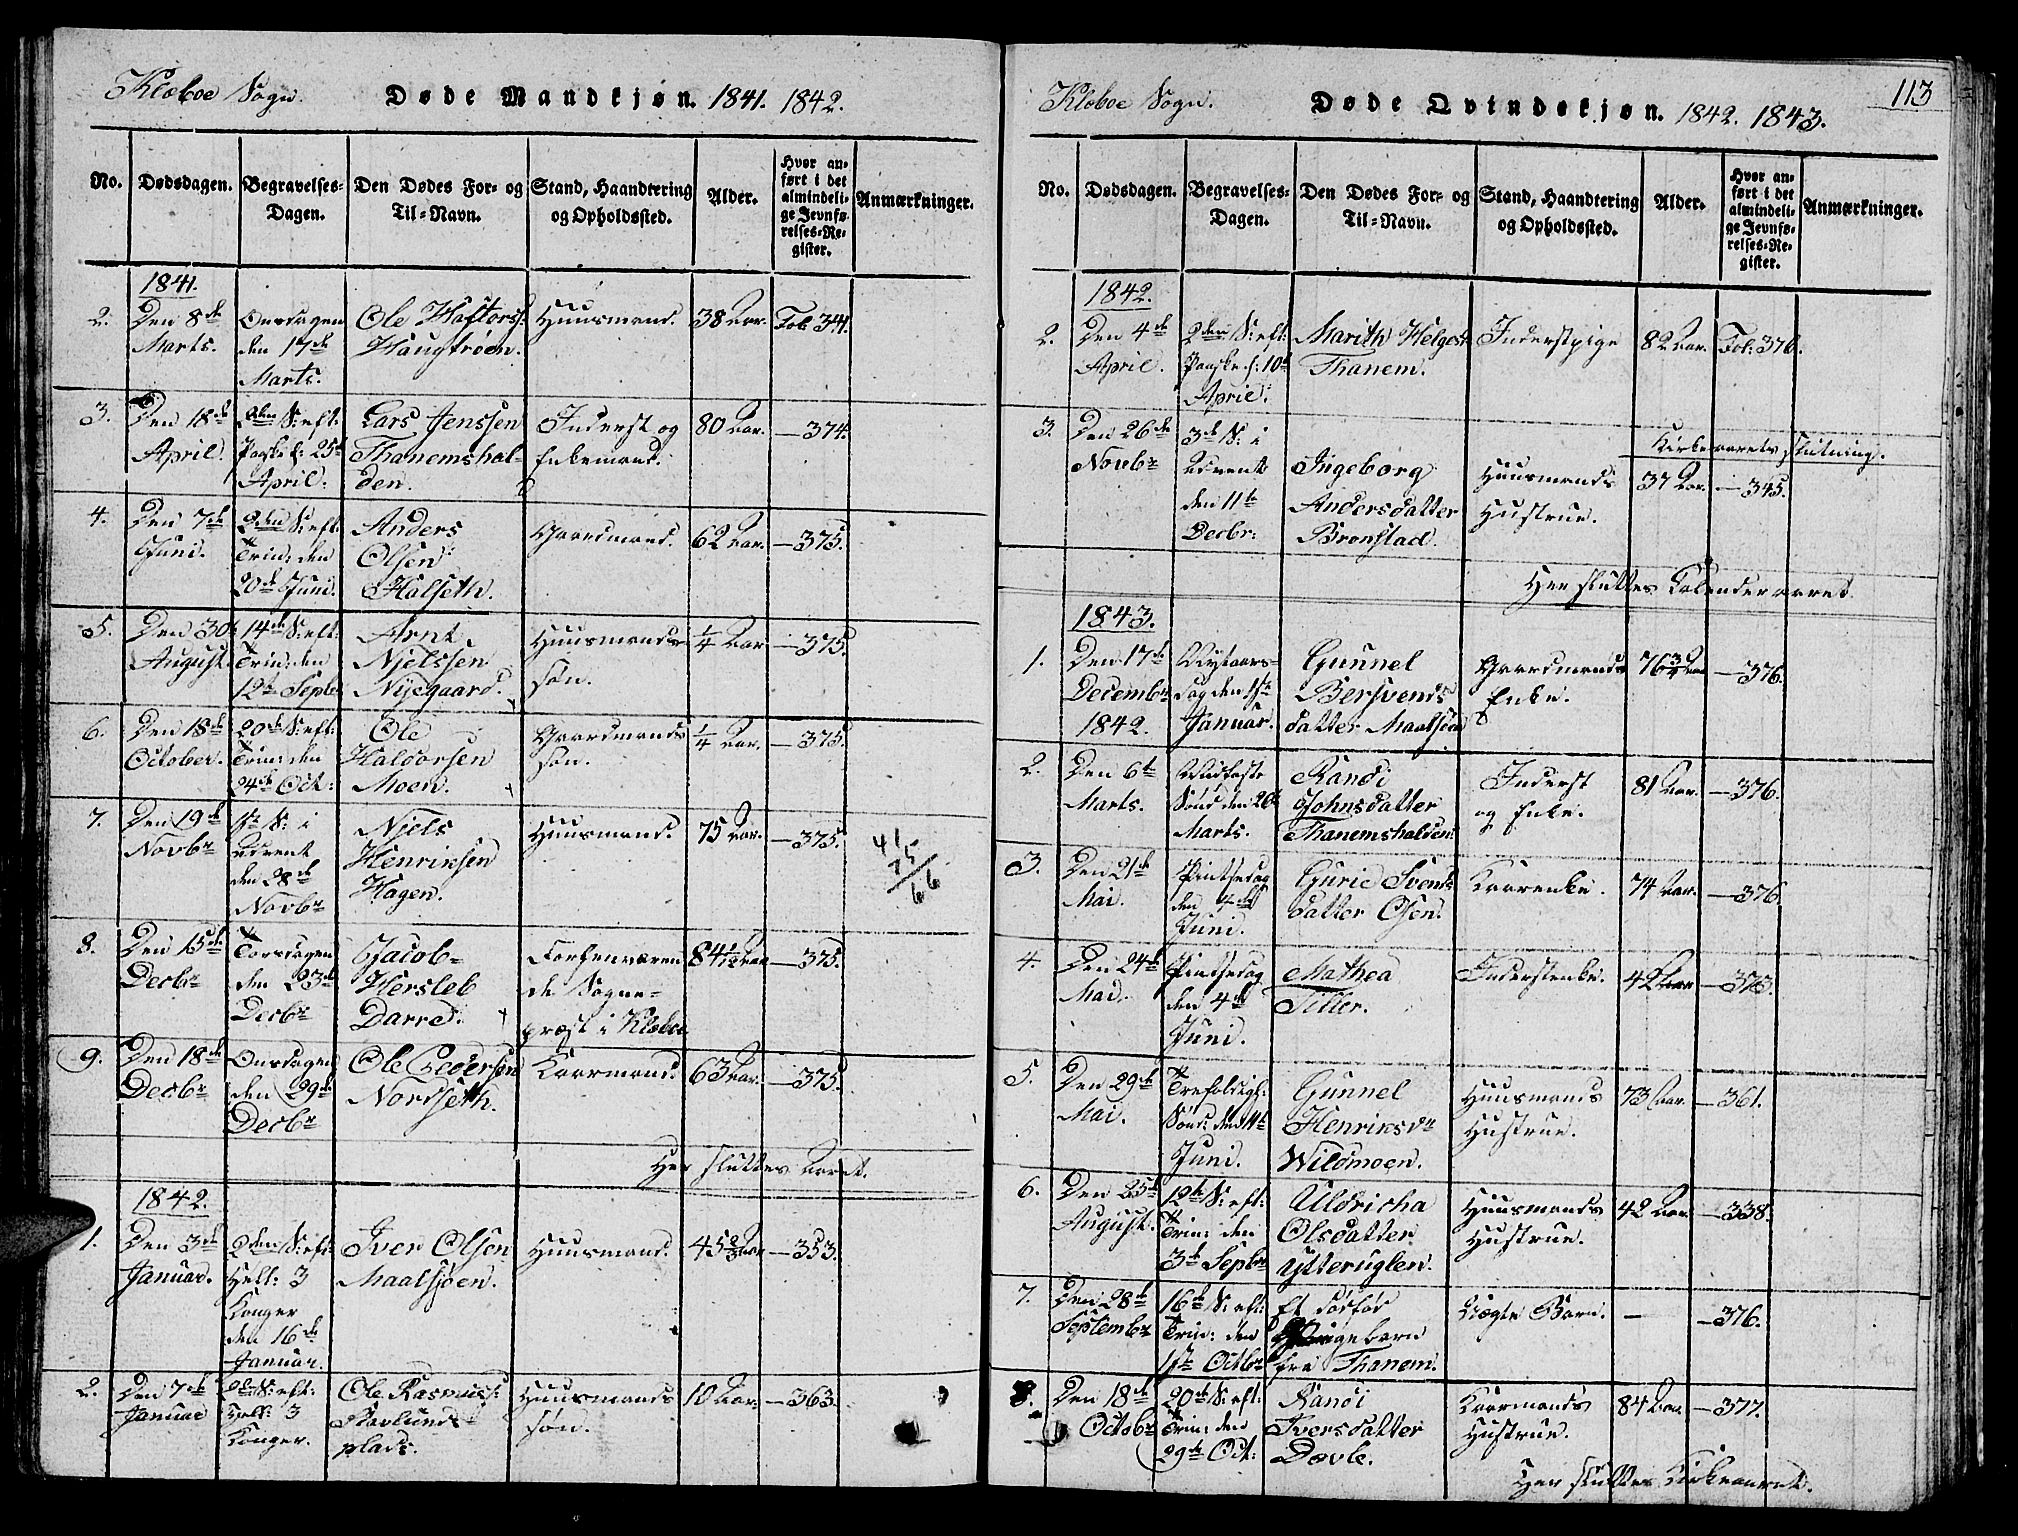 Klæboe Sogn. Døde Mandkjøn. 1841. 1842.
No. Dødsdagen. Begravelses-Dagen. Den Dødes For- og Til-Navn. Stand, Haandtering og Opholdssted. Alder. Hvor anført i det almindelige Jevnførelses-Register. Anmærkninger.
1841.
2. Den 8de Onsdagen Ole Haftors: Huusmand. 38 Aar. Fol. 344.
Marts. den 17de Haugtrøen.
Marts.
3. Den 18de 2den S: eft: Lars Jenssen Inderst og 80 Aar. — 374.
April. Paaske d: 25de Thanemshal- Enkemand.
April. den.
4. Den 7de 2den S: eft: Anders Gaardmand. 62 Aar. — 375.
Juni. Trin: den Olsen
20de Juni. Halseth.
5. Den 30te 14de S: eft: Arnt Huusmands 1/4 Aar — 375.
August. Trin: den Njelssen søn.
12te Septbr Nyegaard.
6. Den 18de 20de S: eft: Ole Gaardmands 1/4 Aar. — 375.
October. Trin: den Haldorsen søn.
24de Oct: Moen.
7. Den 19de 1ste S: i Njels Huusmand. 75 Aar. — 375.
Novbr Advent Henriksen
den 28de Hagen.
Novbr
41
25
66
8. Den 15de Torsdagen Jacob Forhenværen 84 1/12 Aar — 375.
Decbr den 23de Hersleb de Sogne-
Decbr Darre. præst i Klæboe
9. Den 18de Onsdagen Ole Pedersøn Kaarmand. 63 Aar. — 375.
Decbr den 29de Nordseth.
Decbr
Her sluttes Aaret.
1842.
1. Den 3de 2den S: eft: Iver Olsen Huusmand. 45 2/3 Aar — 353.
Januar. Hell: 3 Maalsjøen.
Konger
den 16de
Januar.
2. Den 7de 2den S: eft: Ole Rasmuss: Huusmands 10 Aar. — 363
Januar Hell: 3 søn.
Konger. plads.
Klæboe Sogn. Døde Qvindekjøn. 1842. 1843. 113
No. Dødsdagen. Begravelses-Dagen. Den Dødes For- og Til-Navn. Stand, Haandtering og Opholdssted. Alder. Hvor anført i det almindelige Jevnførelses-Register. Anmærkninger.
1842.
2. Den 4de 2den S: eft: Marith Helgesd: Inderstpige 82 Aar. Fol: 376.
April. Paaske d: 10de Thanem.
April.
Kirkeaarets slutning.
3. Den 26de 3de S: i Ingeborg Huusmands 37 Aar. — 345.
Novbr Advent Andersdatter Hustrue.
den 11te Bronstad.
Decbr:
Her sluttes Kalenderaaret.
1843.
1. Den 17de Nytaars- Gunnel Gaardmands 76 3/4 Aar — 376.
Decembr dag den 1ste Bersvends Enke.
1842. Januar. datter Maalsjøen
2. Den 6te Midfaste Randi Inderst 81 Aar. — 376.
Marts. Sønd den 26de Johnsdatter og Enke.
Marts. Thanemshalden.
3. Den 21de Pintsedag Gurie Svends Kaarenke. 74 Aar. — 376.
Mai. den 4de datter Osen.
Juni.
4. Den 24de Pintsedag Mathea Inderstenke. 42 Aar — 373.
Mai. den 4de Tiller.
Juni.
5. Den 29de Trefoldigh: Gunnel Huusmands 73 Aar. — 361.
Mai. Sønd: den 11te Henriksdr Hustrue.
Juni. Wildmoen.
6. Den 25de 12te S: eft: Uldricha Huusmands 42 Aar. — 338.
August. Trin: den Olsdatter Hustrue.
3de Septbr Ytteruglen.
7. Den 28de 16de S: eft: Et dødfød Uægte Barn. — — 376.
Septembr Trin: den Pigebarn
1ste Octbr fra Thanem.
8. Den 18de 20de S: eft: Randi Kaarmands 84 Aar — 377.
Octobr Trin: den Iversdatter Hustrue.
29de Oct: Døvle.
Her sluttes Kirkeaaret.